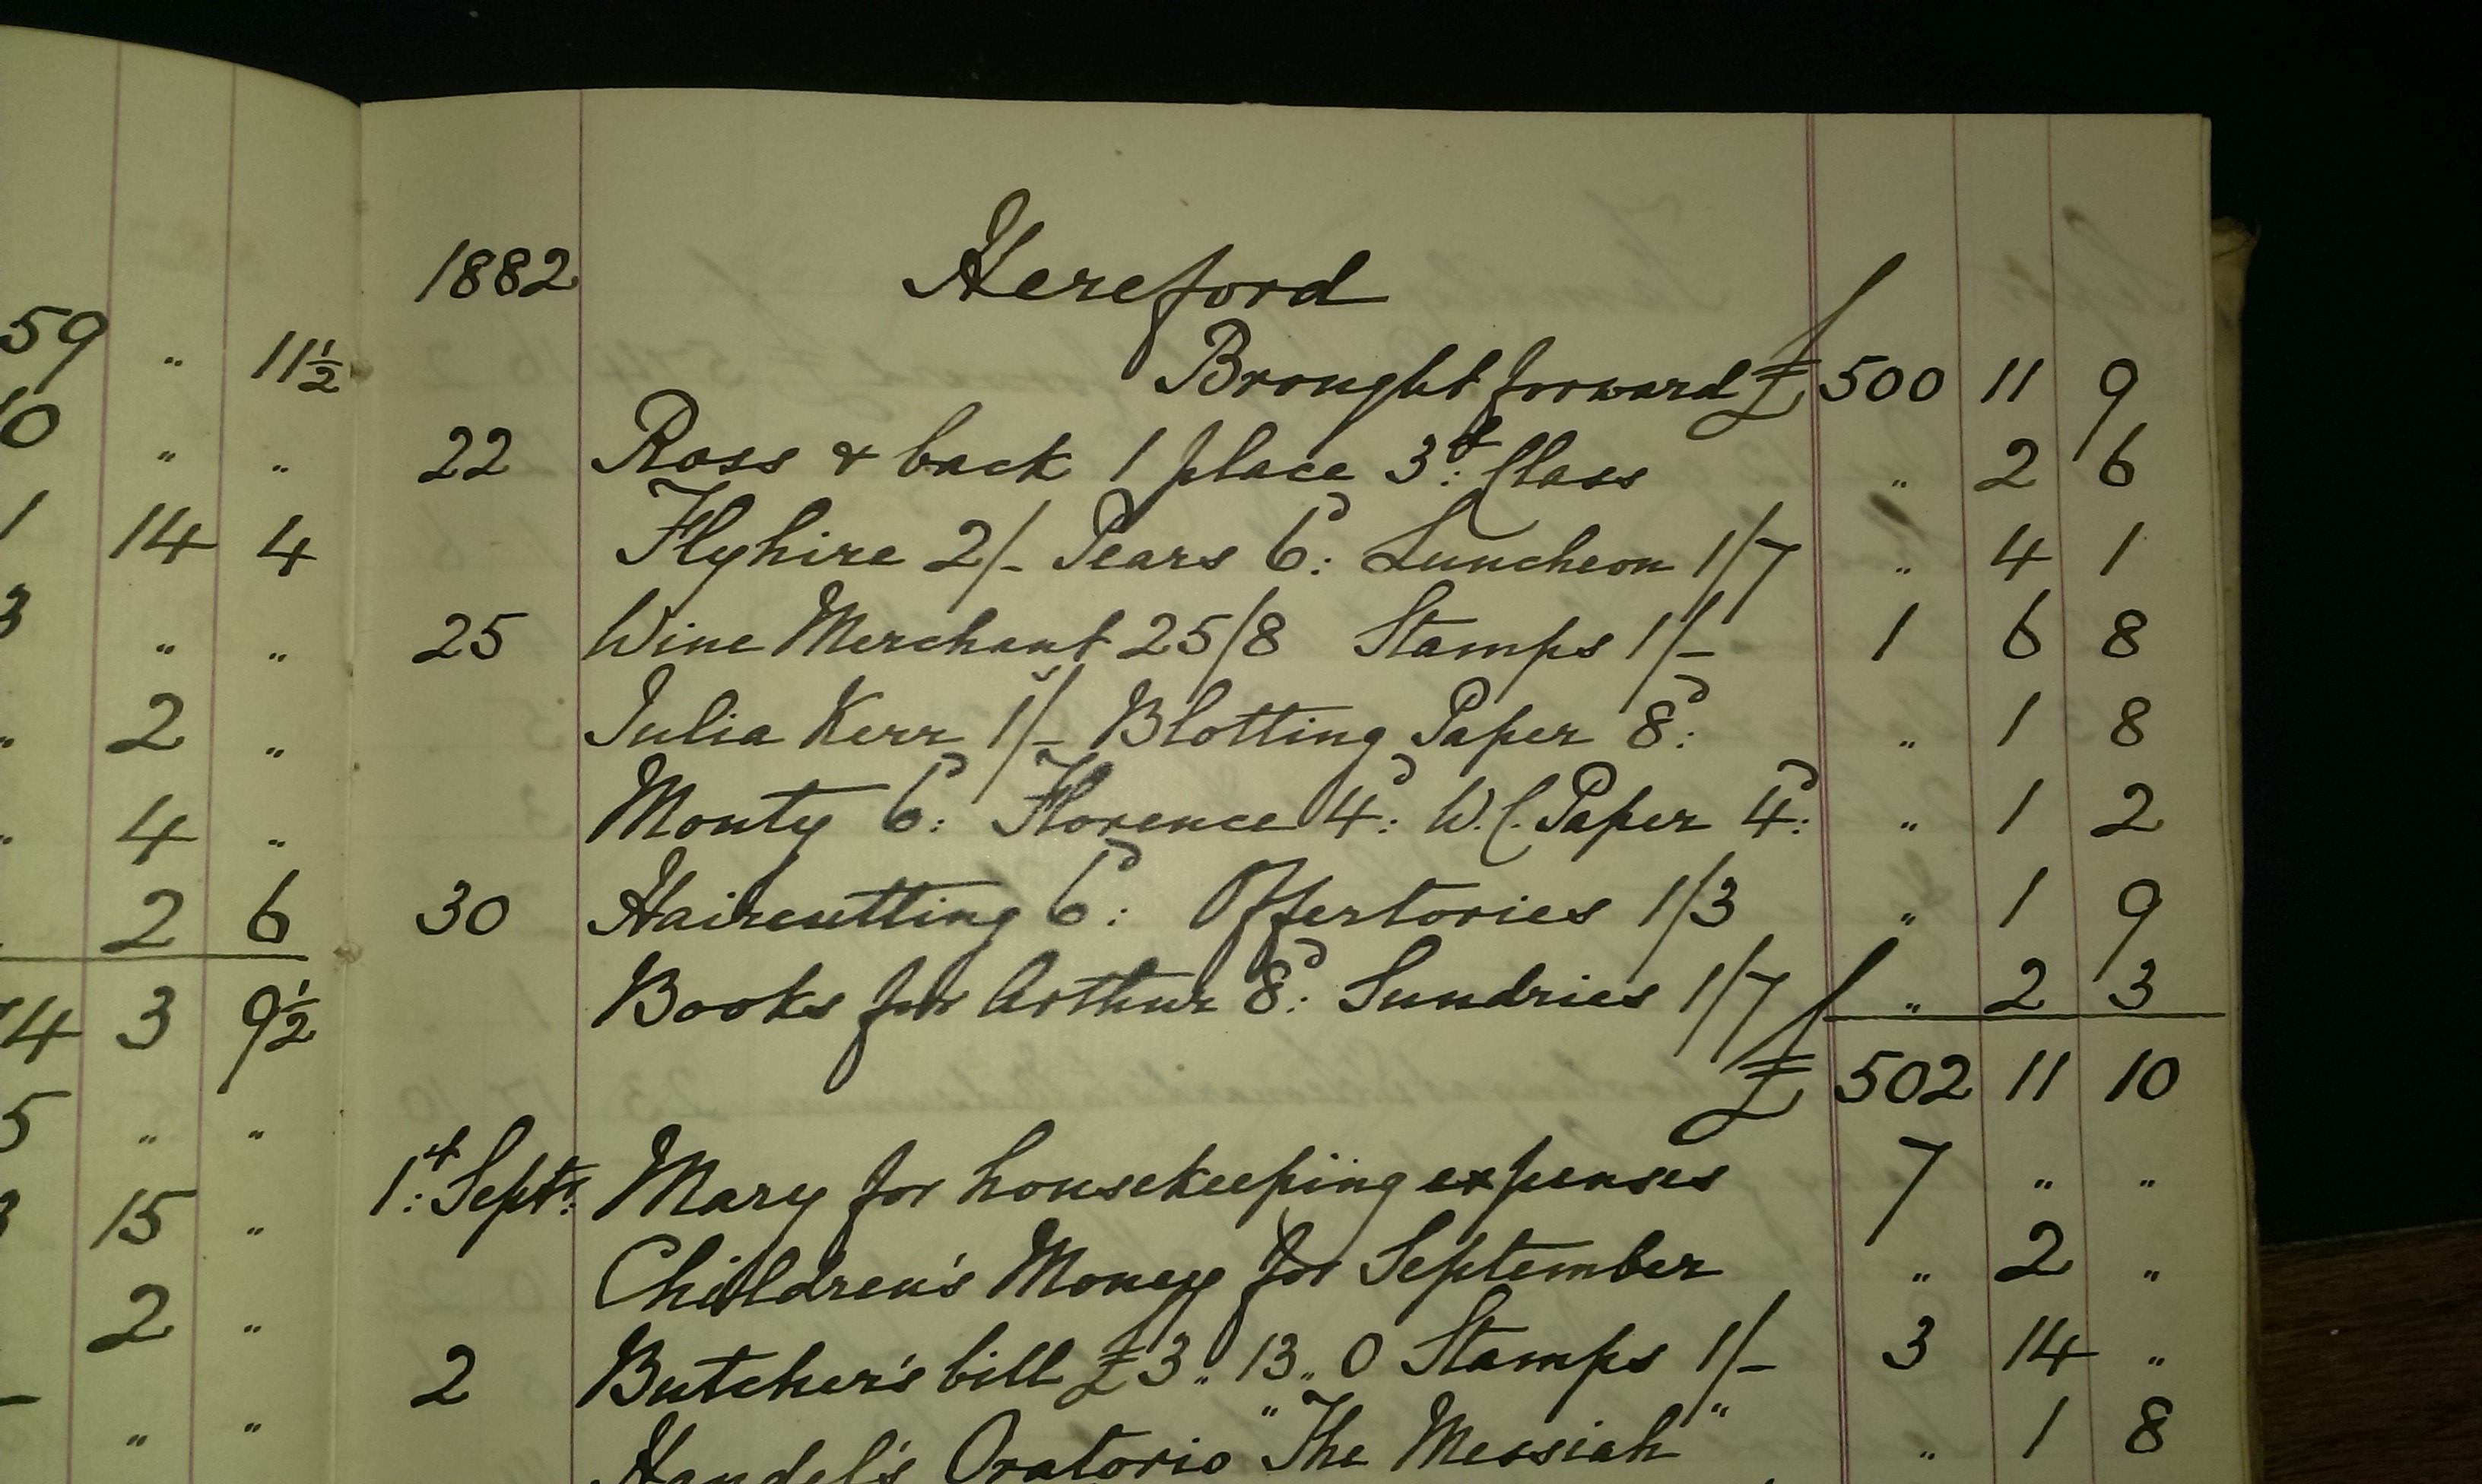 59 " 11½
0 " "
1 14 4
3 " "
" 2 "
" 4 "
2 6
4 3 9½
5 " "
3 15 "
2 "
" "
1882 Hereford
Brought forward £ 500 11 9
22 Ross & back 1 place 3d: Class " 2 6
Flyhire 2/- Pears 6d: Luncheon 1/7 " 4 1
25 Wine Merchant 25/8 Stamps 1/- 1 6 8
Julia Kerr 1/- Blotting Paper 8d: " 1 8
Monty 6d: Florence 4d: W.C. Paper 4d: " 1 2
30 Haircutting 6d: Offertories 1/3 " 1 9
Books for Arthur 8d: Sundries 1/7 " 2 3
£ 502 11 10
1st: Septr: Mary for housekeeping expenses 7 " "
Children's Money for September " 2 "
2 Butcher's bill £3 " 13 " 0 Stamps 1/- 3 14 "
Handel's Oratorio "The Messiah" " 1 8